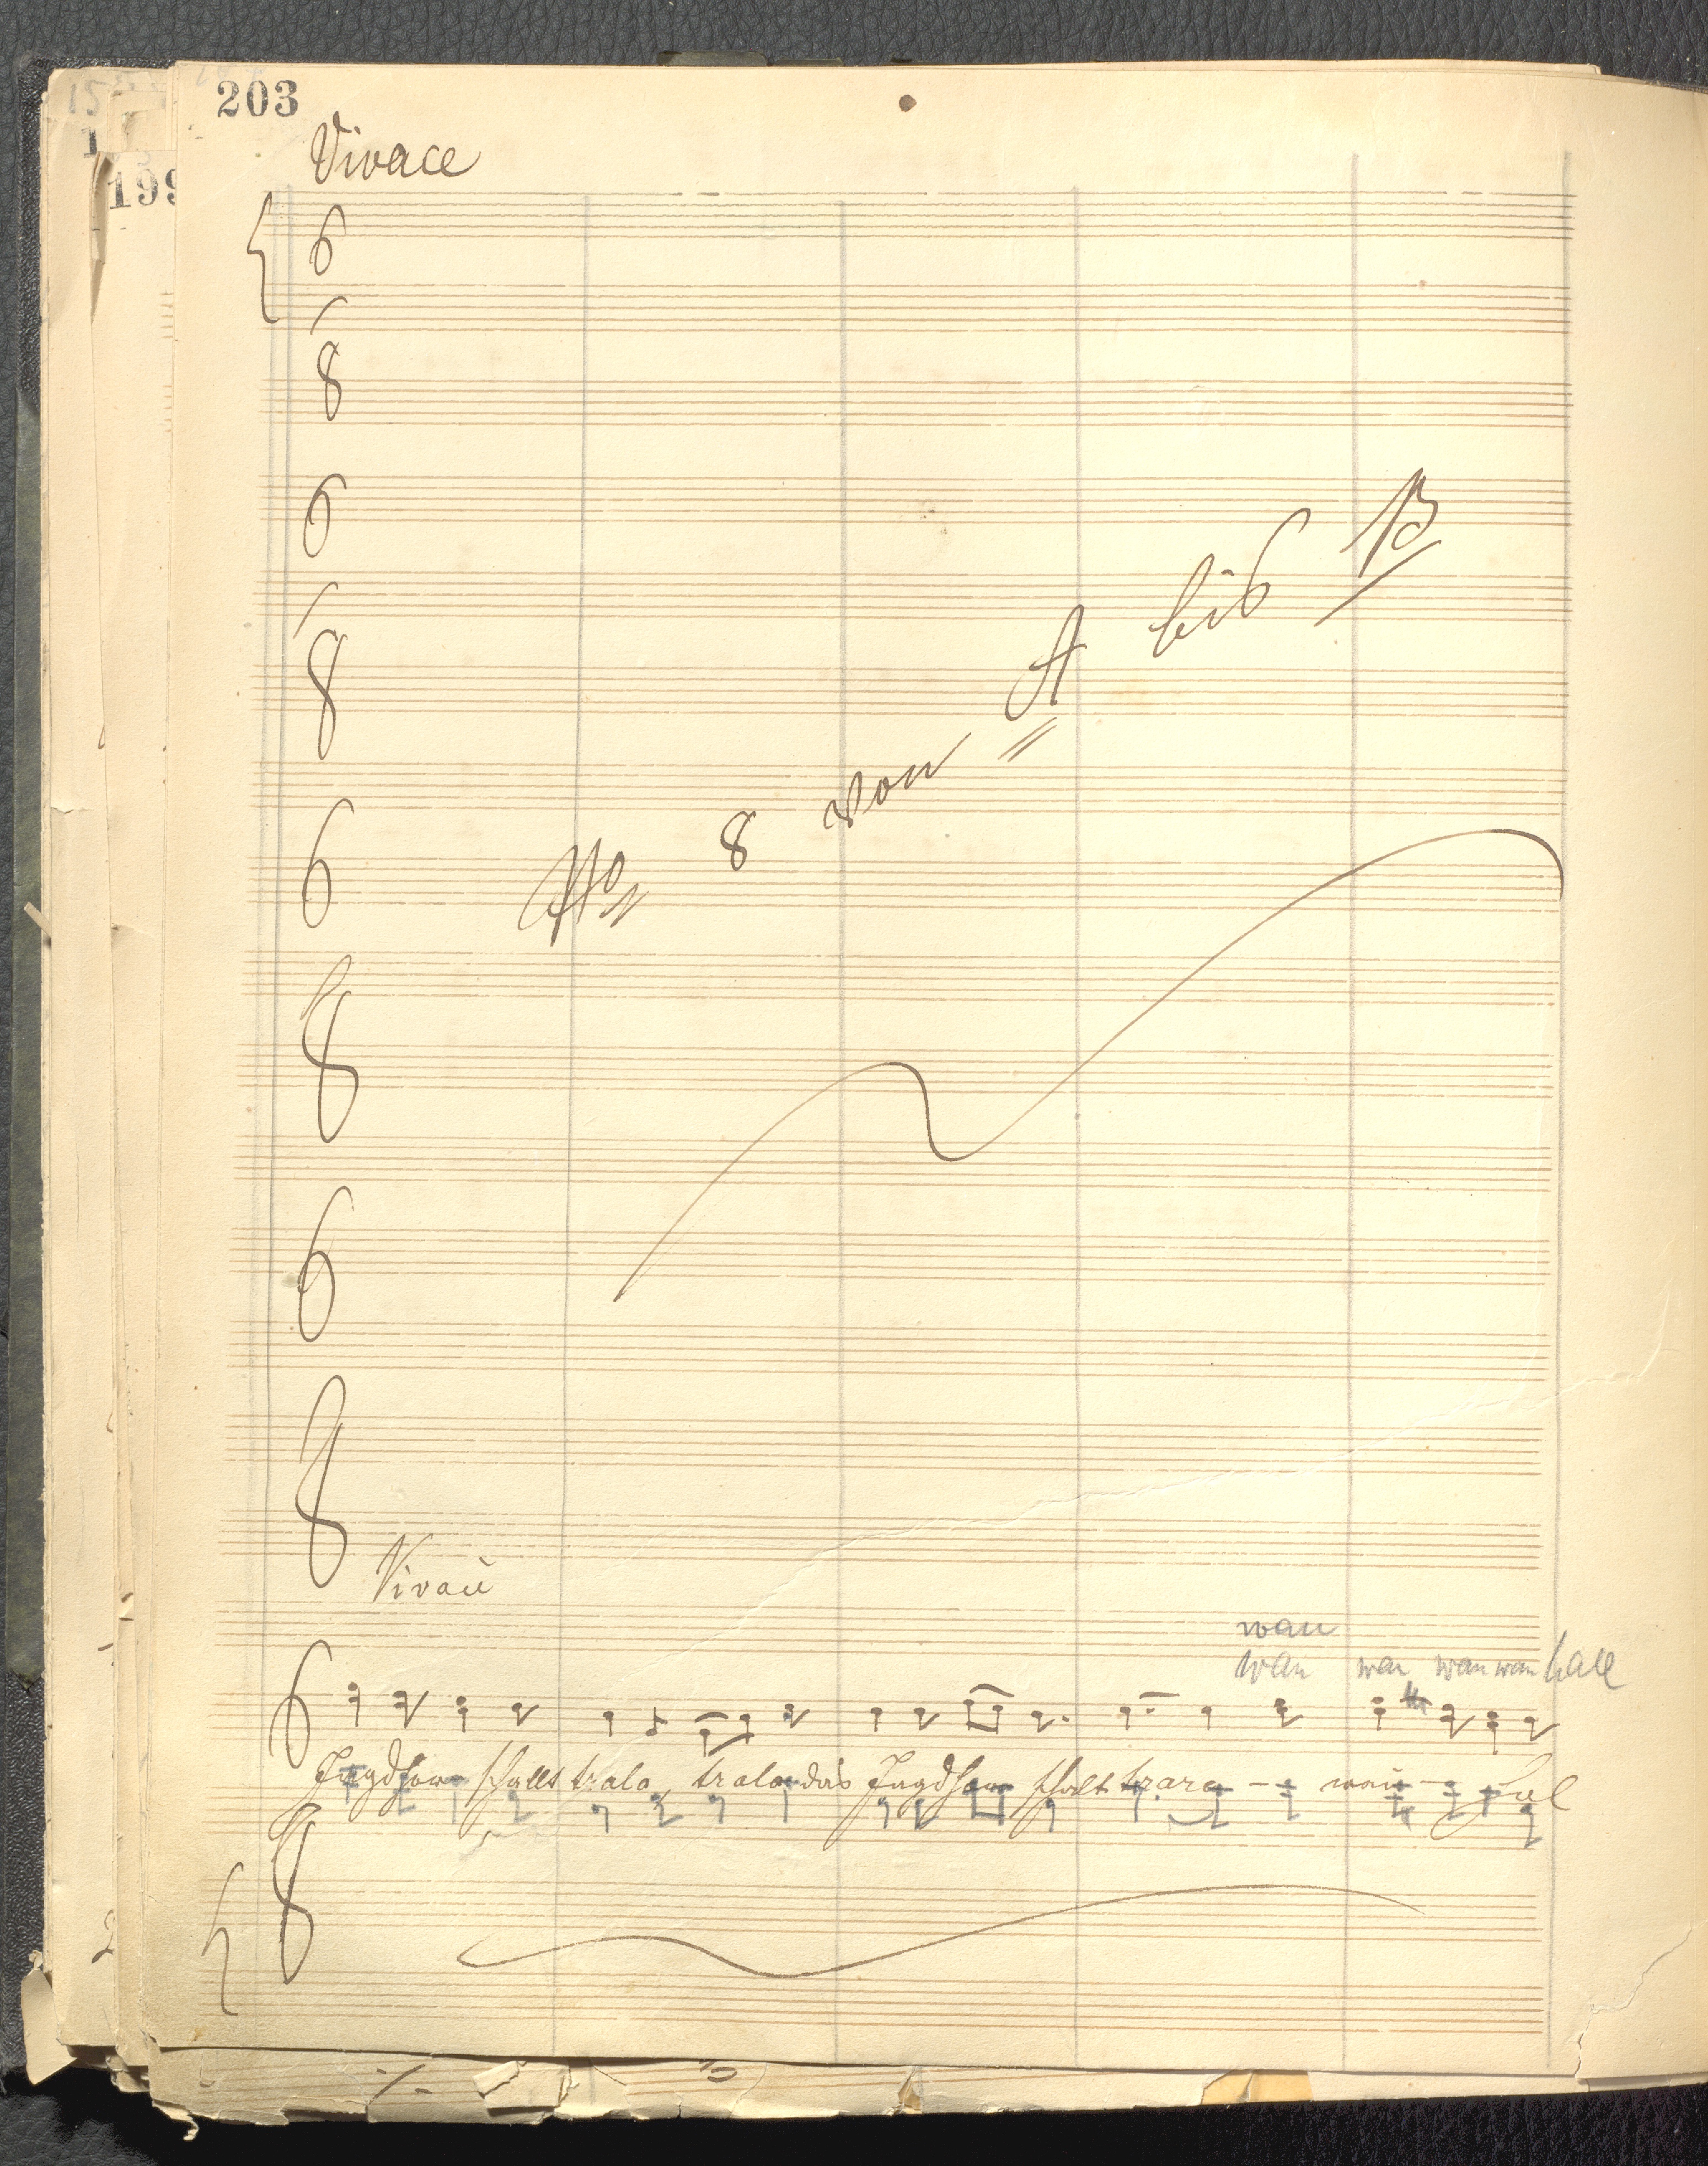 203
199
Vivace
6
8
6
8
No 8 von A bis B
6
8
6
8
Vivace
wau
wau wau wau wau hall
6
Jagdhorn schallt trala, trala das Jagdhorn schallt trara - - wau -
8